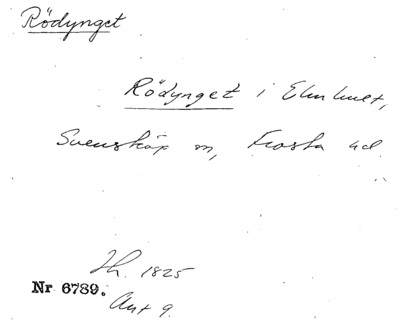 Rödynget
Rödynget i Elmhult,
Svensköp sn, Frosta hd
Th. 1825
Nr 6789.
Ant 9.